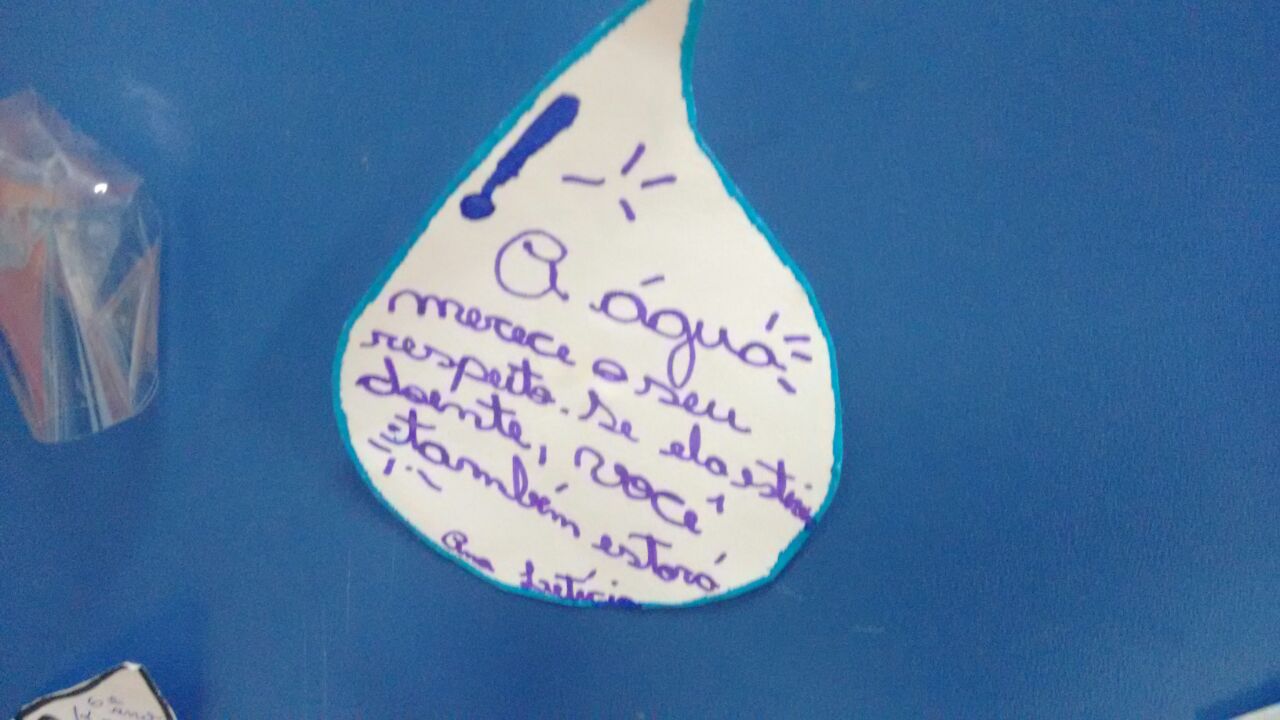 A água
merece o seu
respeito. Se ela estiver
doente, você
também estará
Ana Letícia
6º
ano